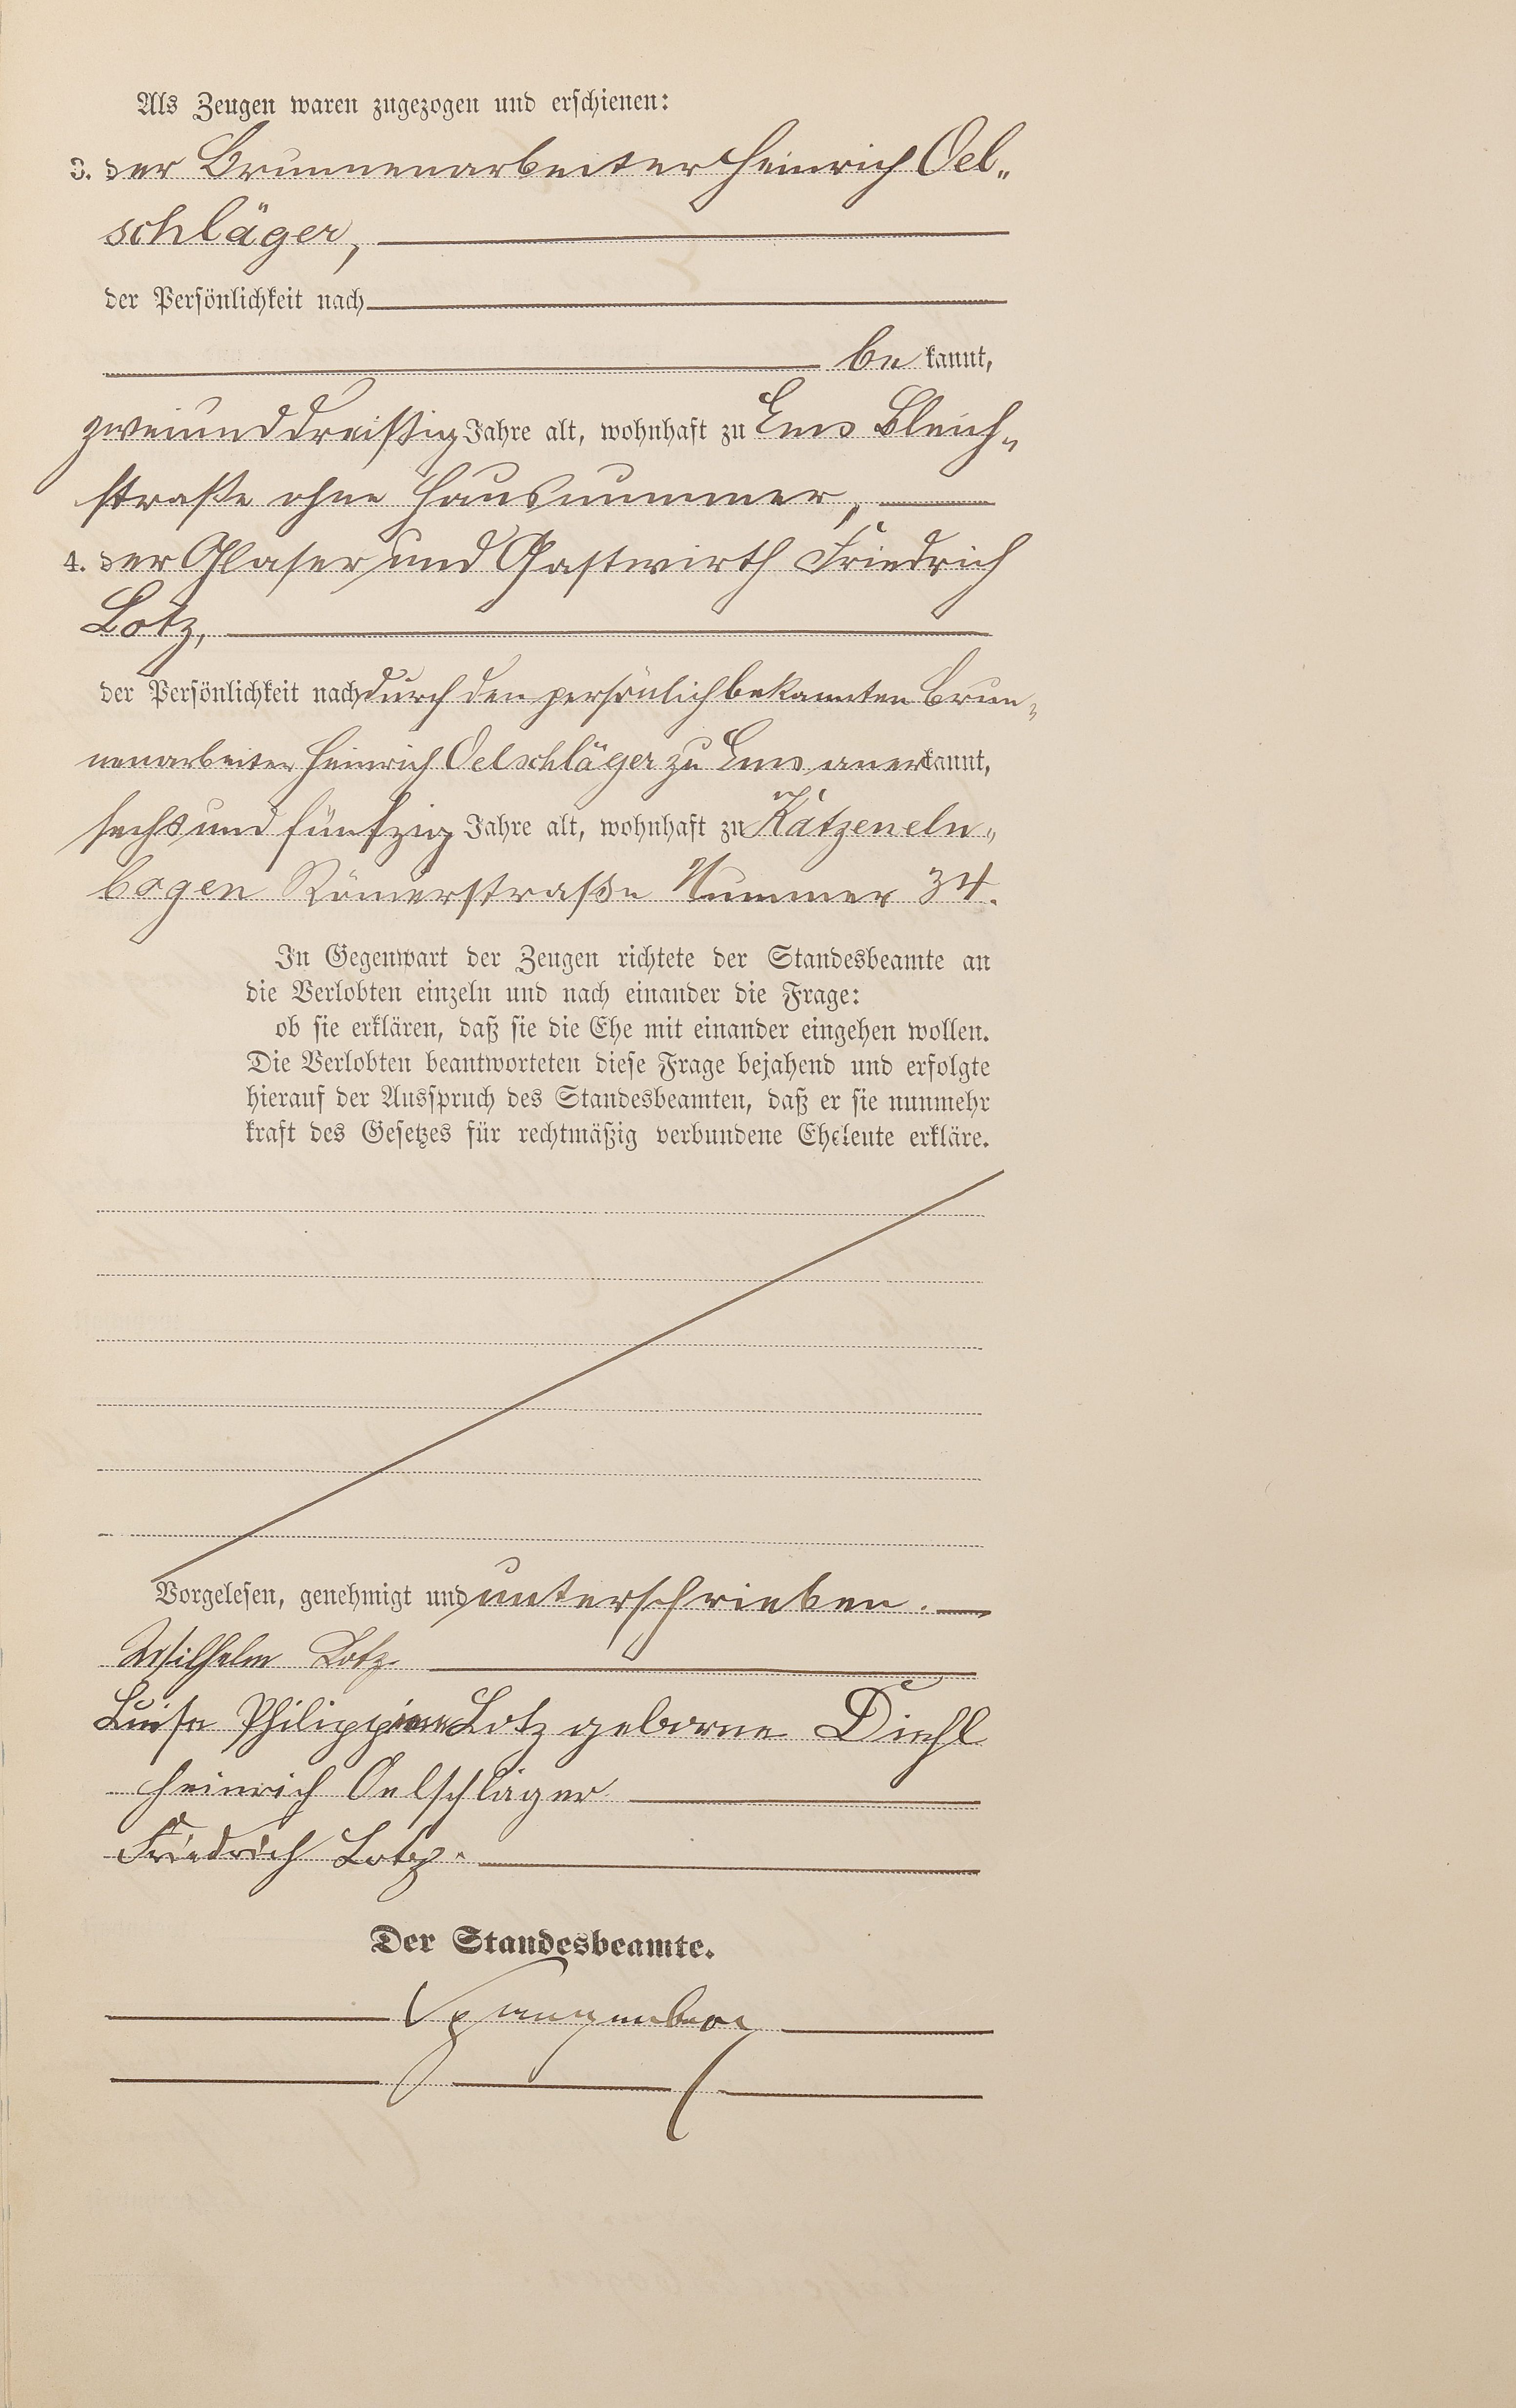 Als Zeugen waren zugezogen und erschienen:
3. der Brunnenarbeiter Heinrich Oel„
schläger,
der Persönlichkeit nach
be kannt,
zweiunddreißig Jahre alt, wohnhaft zu Ems Bleich„
straße ohne Hausnummer,
4. der Glaser und Gastwirth Friedrich
Lotz,
der Persönlichkeit nach durch den persönlich bekannten Brun„
nenarbeiter Heinrich Oelschläger zu Ems anerkannt,
sechs und fünfzig Jahre alt, wohnhaft zu Katzeneln„
bogen Römerstraße Nummer 34.
In Gegenwart der Zeugen richtete der Standesbeamte an
die Verlobten einzeln und nach einander die Frage:
ob sie erklären, daß sie die Ehe mit einander eingehen wollen.
Die Verlobten beantworteten diese Frage bejahend und erfolgte
hierauf der Ausspruch des Standesbeamten, daß er sie nunmehr
kraft des Gesetzes für rechtmäßig verbundene Eheleute erkläre.
Vorgelesen, genehmigt und unterschrieben.
Wilhelm Lotz.
Luise Philippine Lotz geborne Diehl
Heinrich Oelschläger
Friedrich Lotz.
Der Standesbeamte.
Spangenberg